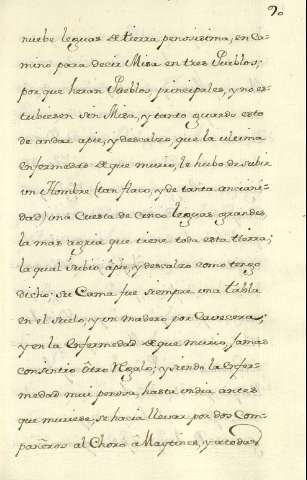 90
nuebe leguas de tierra penosissima, en Ca-
mino para decir Misa en tres Pueblos;
por que heran Pueblos, principales, y no es-
tubiesen sin Misa, y tanto guardo esto
de andar apie, y descalzo, que la ultima
enfermedad de que murio, le hubo de subir
un Hombre (tan flaco, y de tanta anciani-
dad) una Cuesta de cinco leguas grandes,
la mas agria que tiene toda esta tierra;
la qual subio âpie, y descalzo como tengo
dicho; su Cama fue siempre una tabla
en el suelo, y un madero por Cavecera;
y en la Enfermedad de que murio, Jamas
consintio ôtro Regalo; y siendo la enfer-
medad mui penosa, hasta un dia antes
que muriese, se hacia llevar por dos Com-
pañeros al Choro â Maytines, y a todas